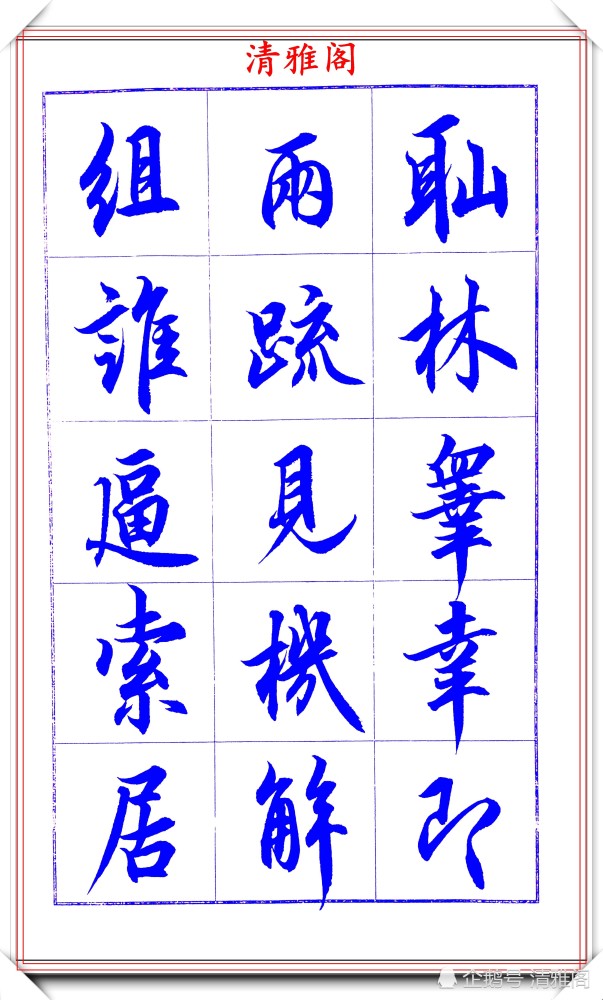 清雅阁
耻林睾幸即
兩疏見機解
組誰逼索居
企鹅号 清雅阁